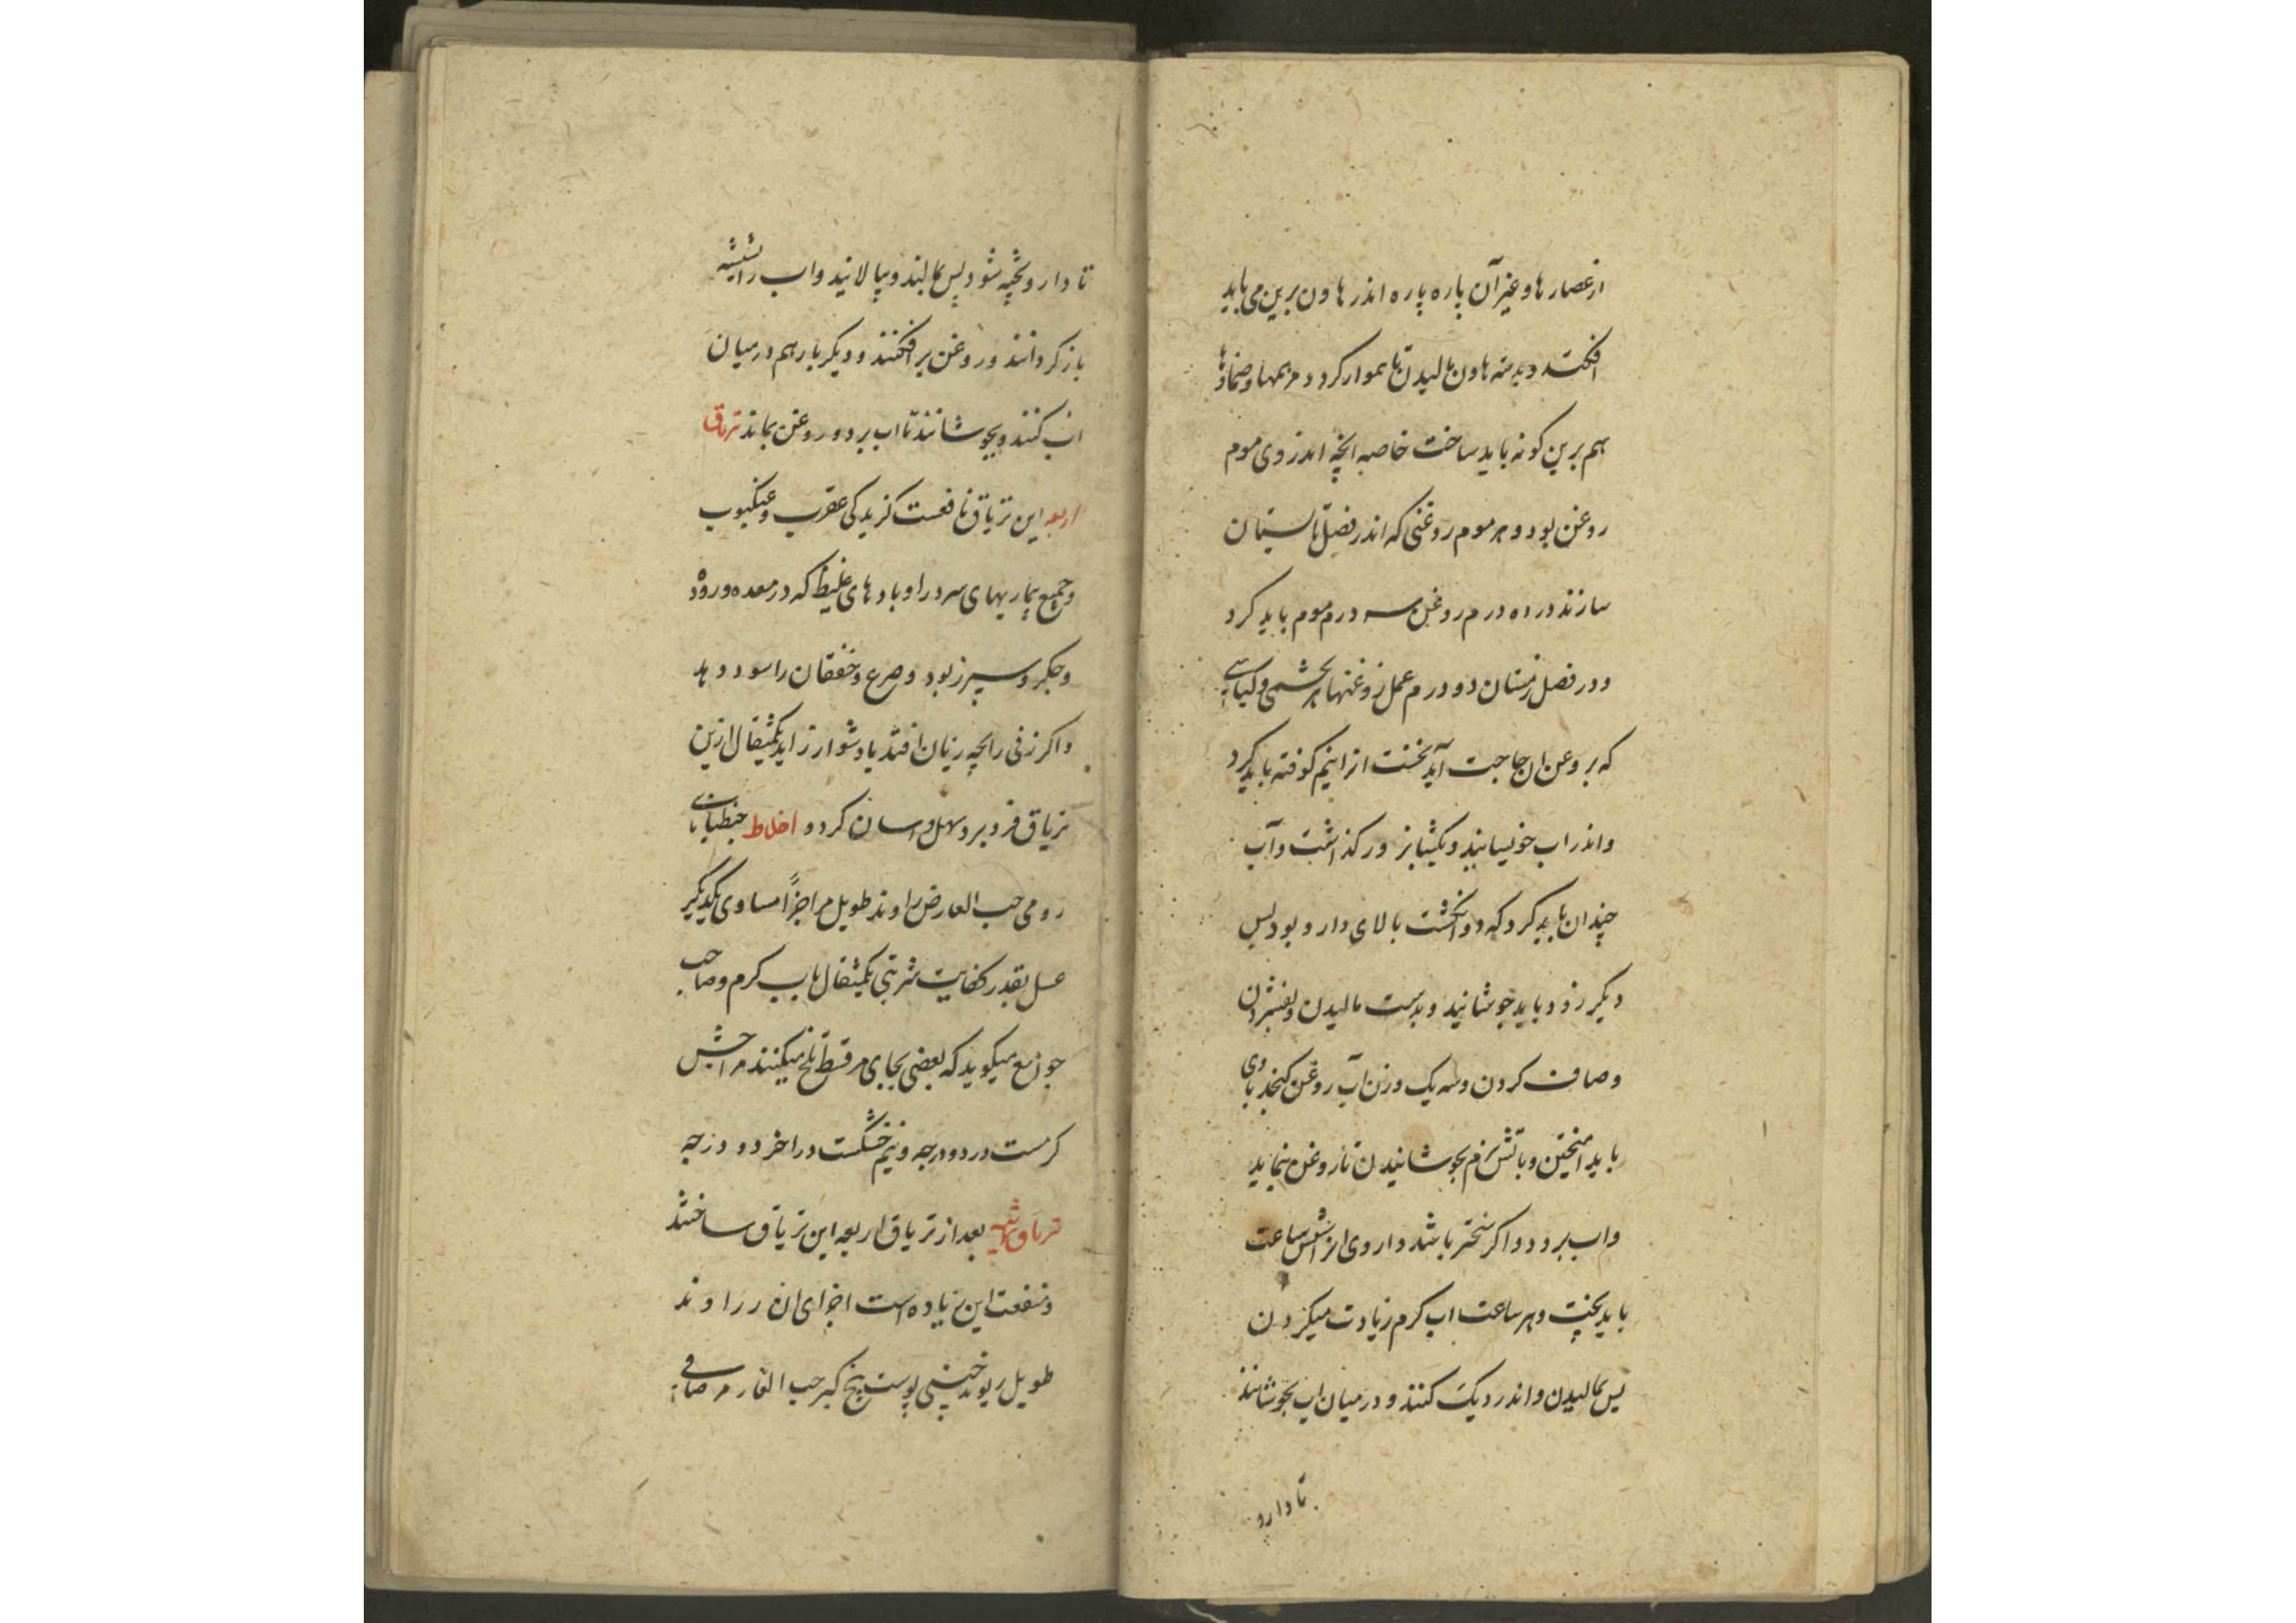 از عصارها و غیر آن پاره پاره اندر هاون برین می باید
افکند و بدسته هاون مالیدن تا هموار گردد و مرهمها و ضمادها
هم برین کونه باید ساخت خاصه انچه اندر وی موم
روغن بود و هر موم روغنی که اندر فصل تابستان
سازند در ده درم روغن سه درم موم باید کرد
و در فصل زمستان دو درم عمل روغنها هر
که بروغن ان حاجت آید نخست انرا نیم کوفته باید کرد
و اندر اب خوسیانید و یکشبانروز گذاشت و آب
چندان باید کرد که دو انگشت بالای دارو بود پس
دیگر روز باید جوشانید و بدست مالیدن و بفشردن
و صاف کردن و سه یک وزن آب روغن کنجد با وی
باید امیختن و باتش نرم بجوشانیدن تا روغن بماند
و اب برود و اگر سختر باشد داروی انرا شش ساعت
باید پخت و هر ساعت اب کرم زیادت میکردن
پس بمالیدن و اندر دیک کنند و در میان اب بجوشانند
تا دارو
تا دارو پخته شود پس بمالند و بپالانید و اب را
باز کردانند و روغن بر افکنند و دیگر بار هم در میان
اب کنند و بجوشانند تا اب برود و روغن بماند تریاق
اربعه این تریاق نافعست کزیدکی عقرب و عنکبوت
و جمیع بیماریهای سرد را و بادهای غلیظ که در معده و روده
و جکر و سپرز بود و صرع و خفقان را سود دهد
و اکر زنی را بچه بزیان افتد یا دشوار زاید یکمثقال ازین
تریاق فرو برد سهل و اسان کردد اخلاط جنطیانای
رومی حب الغار زراوند طویل مر اجزا مساوی یکدیگر
عسل بقدر کفایت شربتی یکمثقال باب کرم و صاحب
جوامع میکوید که بعضی بجای مر قسط تلخ میکنند مزاجش
کرمست در دو درجه و نیم خشکست در اخر دو درجه
تریاق ثمانیه بعد از تریاق اربعه این تریاق ساختند
و منفعت این زیاده است اجزای ان زراوند
طویل ریوند چینی پوست بیخ کبر حب الغار مر صافی